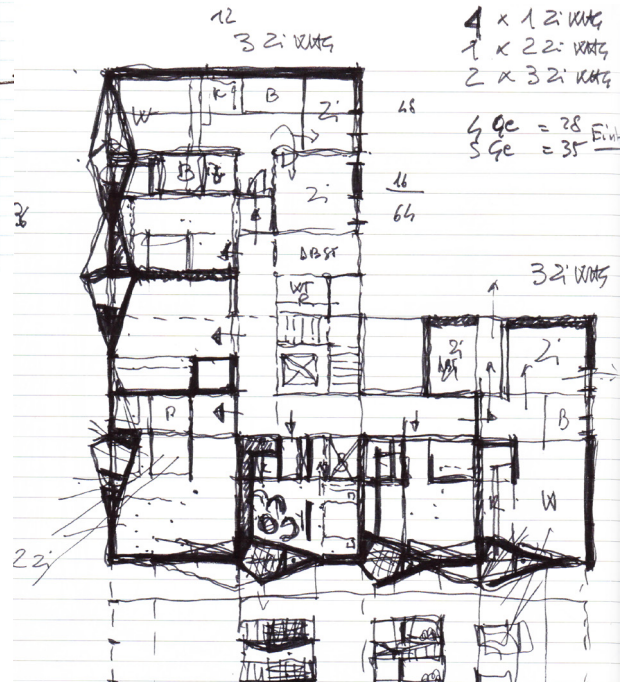 12
3 Zi WHG
4 x 1 Zi WHG
1 x 2 Zi WHG
2 x 3 Zi WHG
4 Ge = 28
5 Ge = 35
K
B
W
Zi
48
B
Zi
16
64
36
ABST
WT
R
3 Zi WHG
Zi
ABST
Zi
B
B
K
W
2 Zi